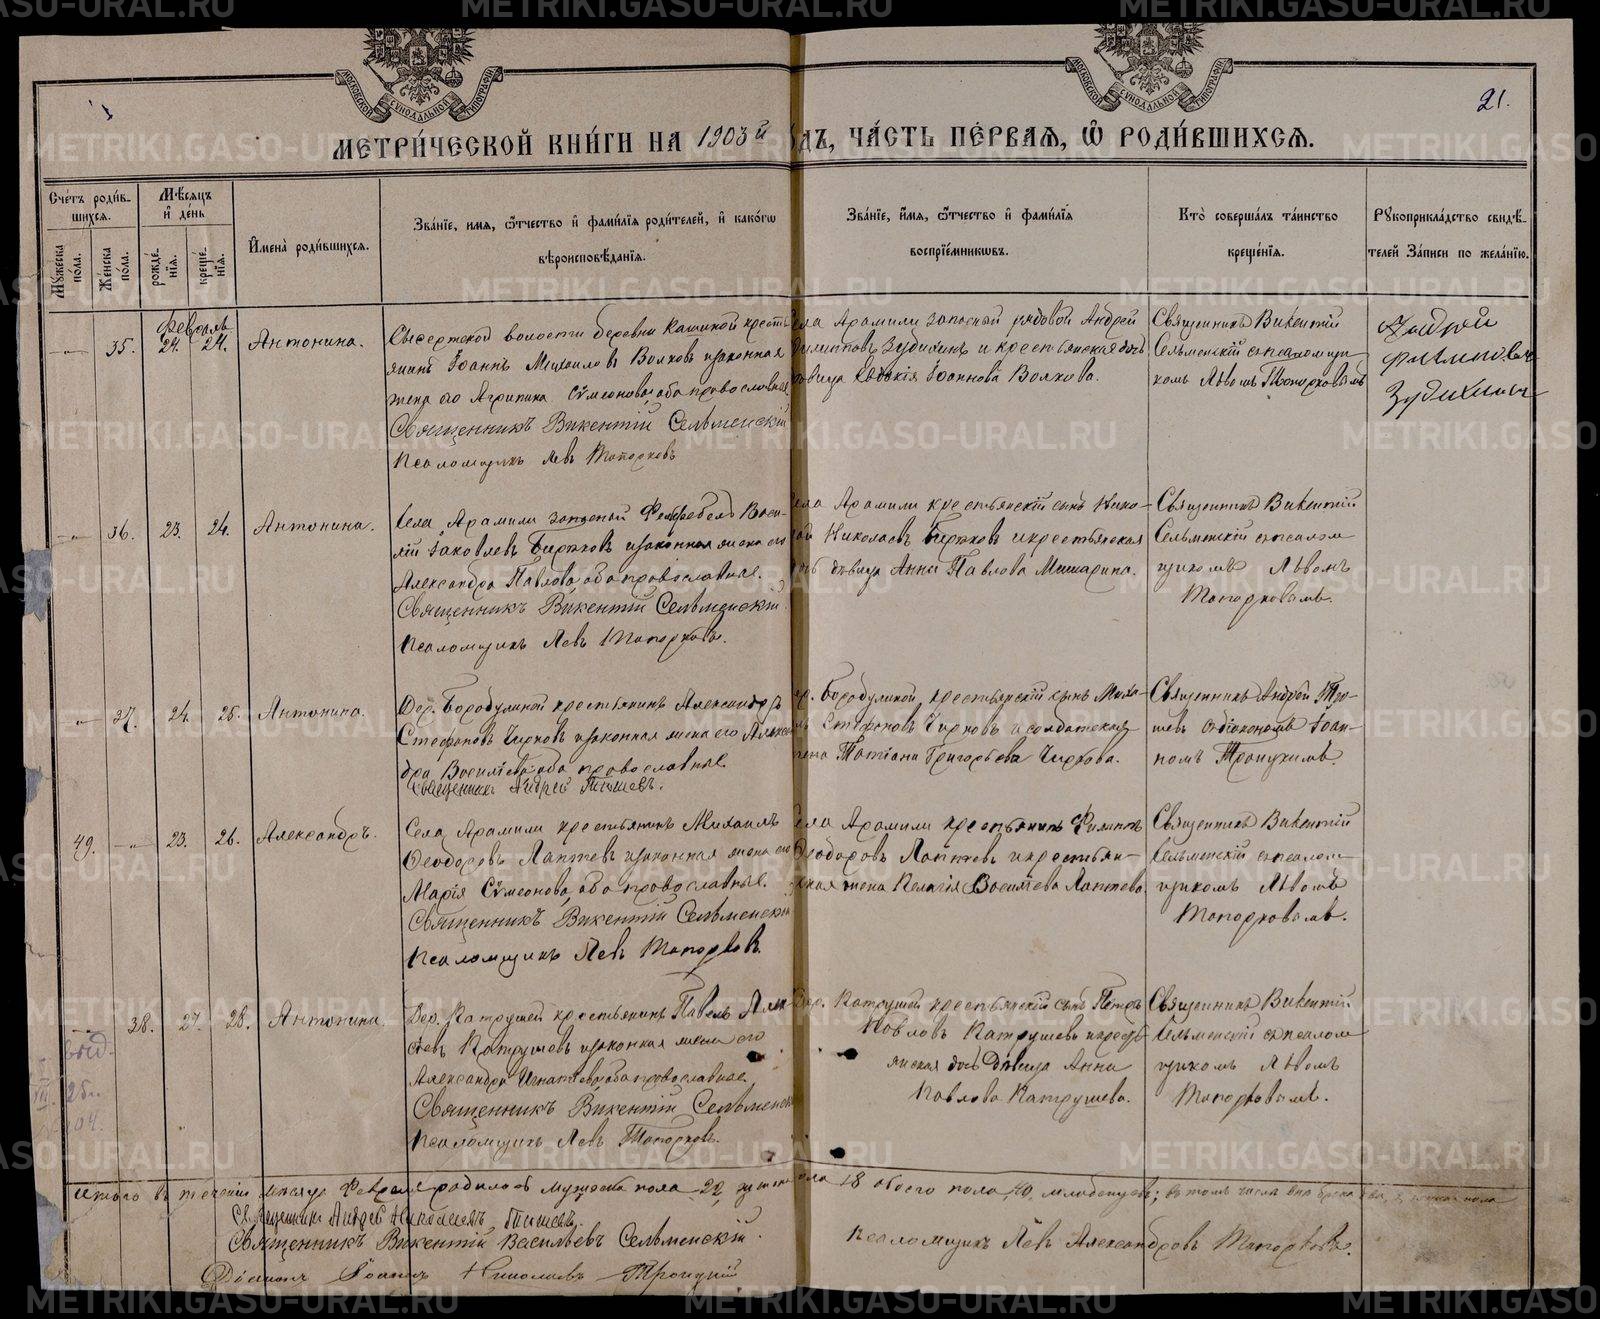 METRIKI.GASO-URAL.RU
21.
МОСКОВСКОЙ СѴНОДАЛЬНОЙ ТИПОГРАФІИ
МЕТРИ́ЧЕСКОЙ КНИ́ГИ НА 1903й дъ, ЧА́СТЬ ПЕ́РВАѦ, Ѡ РОДИ́ВШИХСѦ.
Сче́тъ роди́в-шихсѧ.
Мꙋ́жеска по́ла.
Же́нска по́ла.
Мѣ́сѧцъ и҆ де́нь
рожде́-нїѧ.
креще́-нїѧ.
И҆мена̀ роди́вшихсѧ.
Зва́нїе, и҆́мѧ, ѻ҆́тчество и҆ фами́лїѧ роди́телей, и҆ како́гѡ
вѣроисповѣ́данїѧ.
Зва́нїе, и҆́мѧ, ѻ҆́тчество и҆ фами́лїѧ
воспрїе́мникѡвъ.
Кто̀ соверша́лъ та́инство
креще́нїѧ.
Рꙋкоприкла́дство свидѣ́-
телей За́писи по жела́нїю.
Февраль
35. 24. 24. Антонина.
Сысертской волости деревни Кашиной кресть-
янинъ Іоаннъ Михаиловъ Волковъ и законная
жена его Агрипина Сѵмеонова, оба православные.
Священникъ Викентій Сельменскій
Псаломщикъ Левъ Топорковъ
Села Арамили запасный рядовой Андрей
Филипповъ Зудихинъ и крестьянская дочь
девица Евдокія Іоаннова Волкова.
Священникъ Викентій
Сельменскій съ псаломщи-
комъ Львомъ Топорковымъ
Андрей
Филиповъ
Зудихинъ
36. 23. 24. Антонина.
Села Арамили запасный Фельдфебель Васи-
лій Іаковлевъ Бирюковъ и законная жена его
Александра Павлова, оба православные.
Священникъ Викентій Сельменскій
Псаломщикъ Левъ Топорковъ.
Села Арамили крестьянскій сынъ Нико-
лай Николаевъ Бирюковъ и крестьянская
дочь девица Анна Павлова Мишарина.
Священникъ Викентій
Сельменскій съ псалом
щикомъ Львомъ
Топорковымъ.
37. 24. 25. Антонина.
Дер. Бородулиной крестьянинъ Александръ
Стефановъ Чирковъ и законная жена его Алексан
дра Васильева, оба православные.
Священникъ Андрей Тишевъ.
др. Бородулиной, крестьянскій сынъ Миха-
илъ Стефановъ Чирковъ и солдатская
жена Татіана Григорьева Чиркова.
Священникъ Андрей Ти-
шевъ съ діакономъ Іоан-
номъ Троицкимъ.
49. 23. 26. Александръ.
Села Арамили крестьянинъ Михаилъ
Ѳеодоровъ Лаптевъ и законная жена его
Марія Сѵмеонова, оба православные.
Священникъ Викентій Сельменскій
Псаломщикъ Левъ Топорковъ.
Села Арамили крестьянинъ Филиппъ
Ѳеодоровъ Лаптевъ и крестьян-
ская жена Пелагія Васильева Лаптева.
Священникъ Викентій
Сельменскій съ псалом-
щикомъ Львомъ
Топорковымъ.
38. 27. 28. Антонина.
Дер. Катрушей крестьянинъ Павелъ Алек
сѣевъ Катрушевъ и законная жена его
Александра Игнатьева, оба православные.
Священникъ Викентій Сельменскій
Псаломщикъ Левъ Топорковъ.
Дер. Катрушей крестьянскій сынъ Петръ
Павловъ Катрушевъ и кресть
янская дочь девица Анна
Павлова Катрушева.
Священникъ Викентій
Сельменскій съ псалом
щикомъ Львомъ
Топорковымъ.
выд.
25.
04.
Итого въ теченіи месяца Февраля родилось мужеска пола 22, женска пола 18 обоего пола 40, младенцевъ; въ томъ числѣ
Священникъ Андрей Николаевъ Тишевъ.
Священникъ Викентій Васильевъ Сельменскій.
Псаломщикъ Левъ Александровъ Топорковъ.
Діаконъ Іоаннъ Николаевъ Троицкій